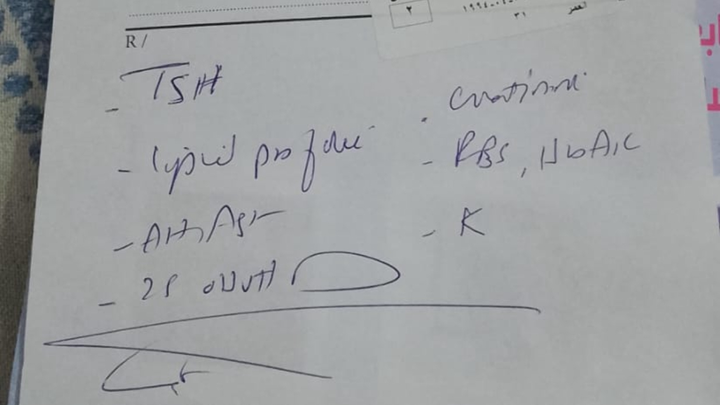 R /
٢
٣١
العمر
- TSH
- lipid profile
- Alt, Ast
- 25 OHVitD
. creatinine
- RBS, HbA1C
- K